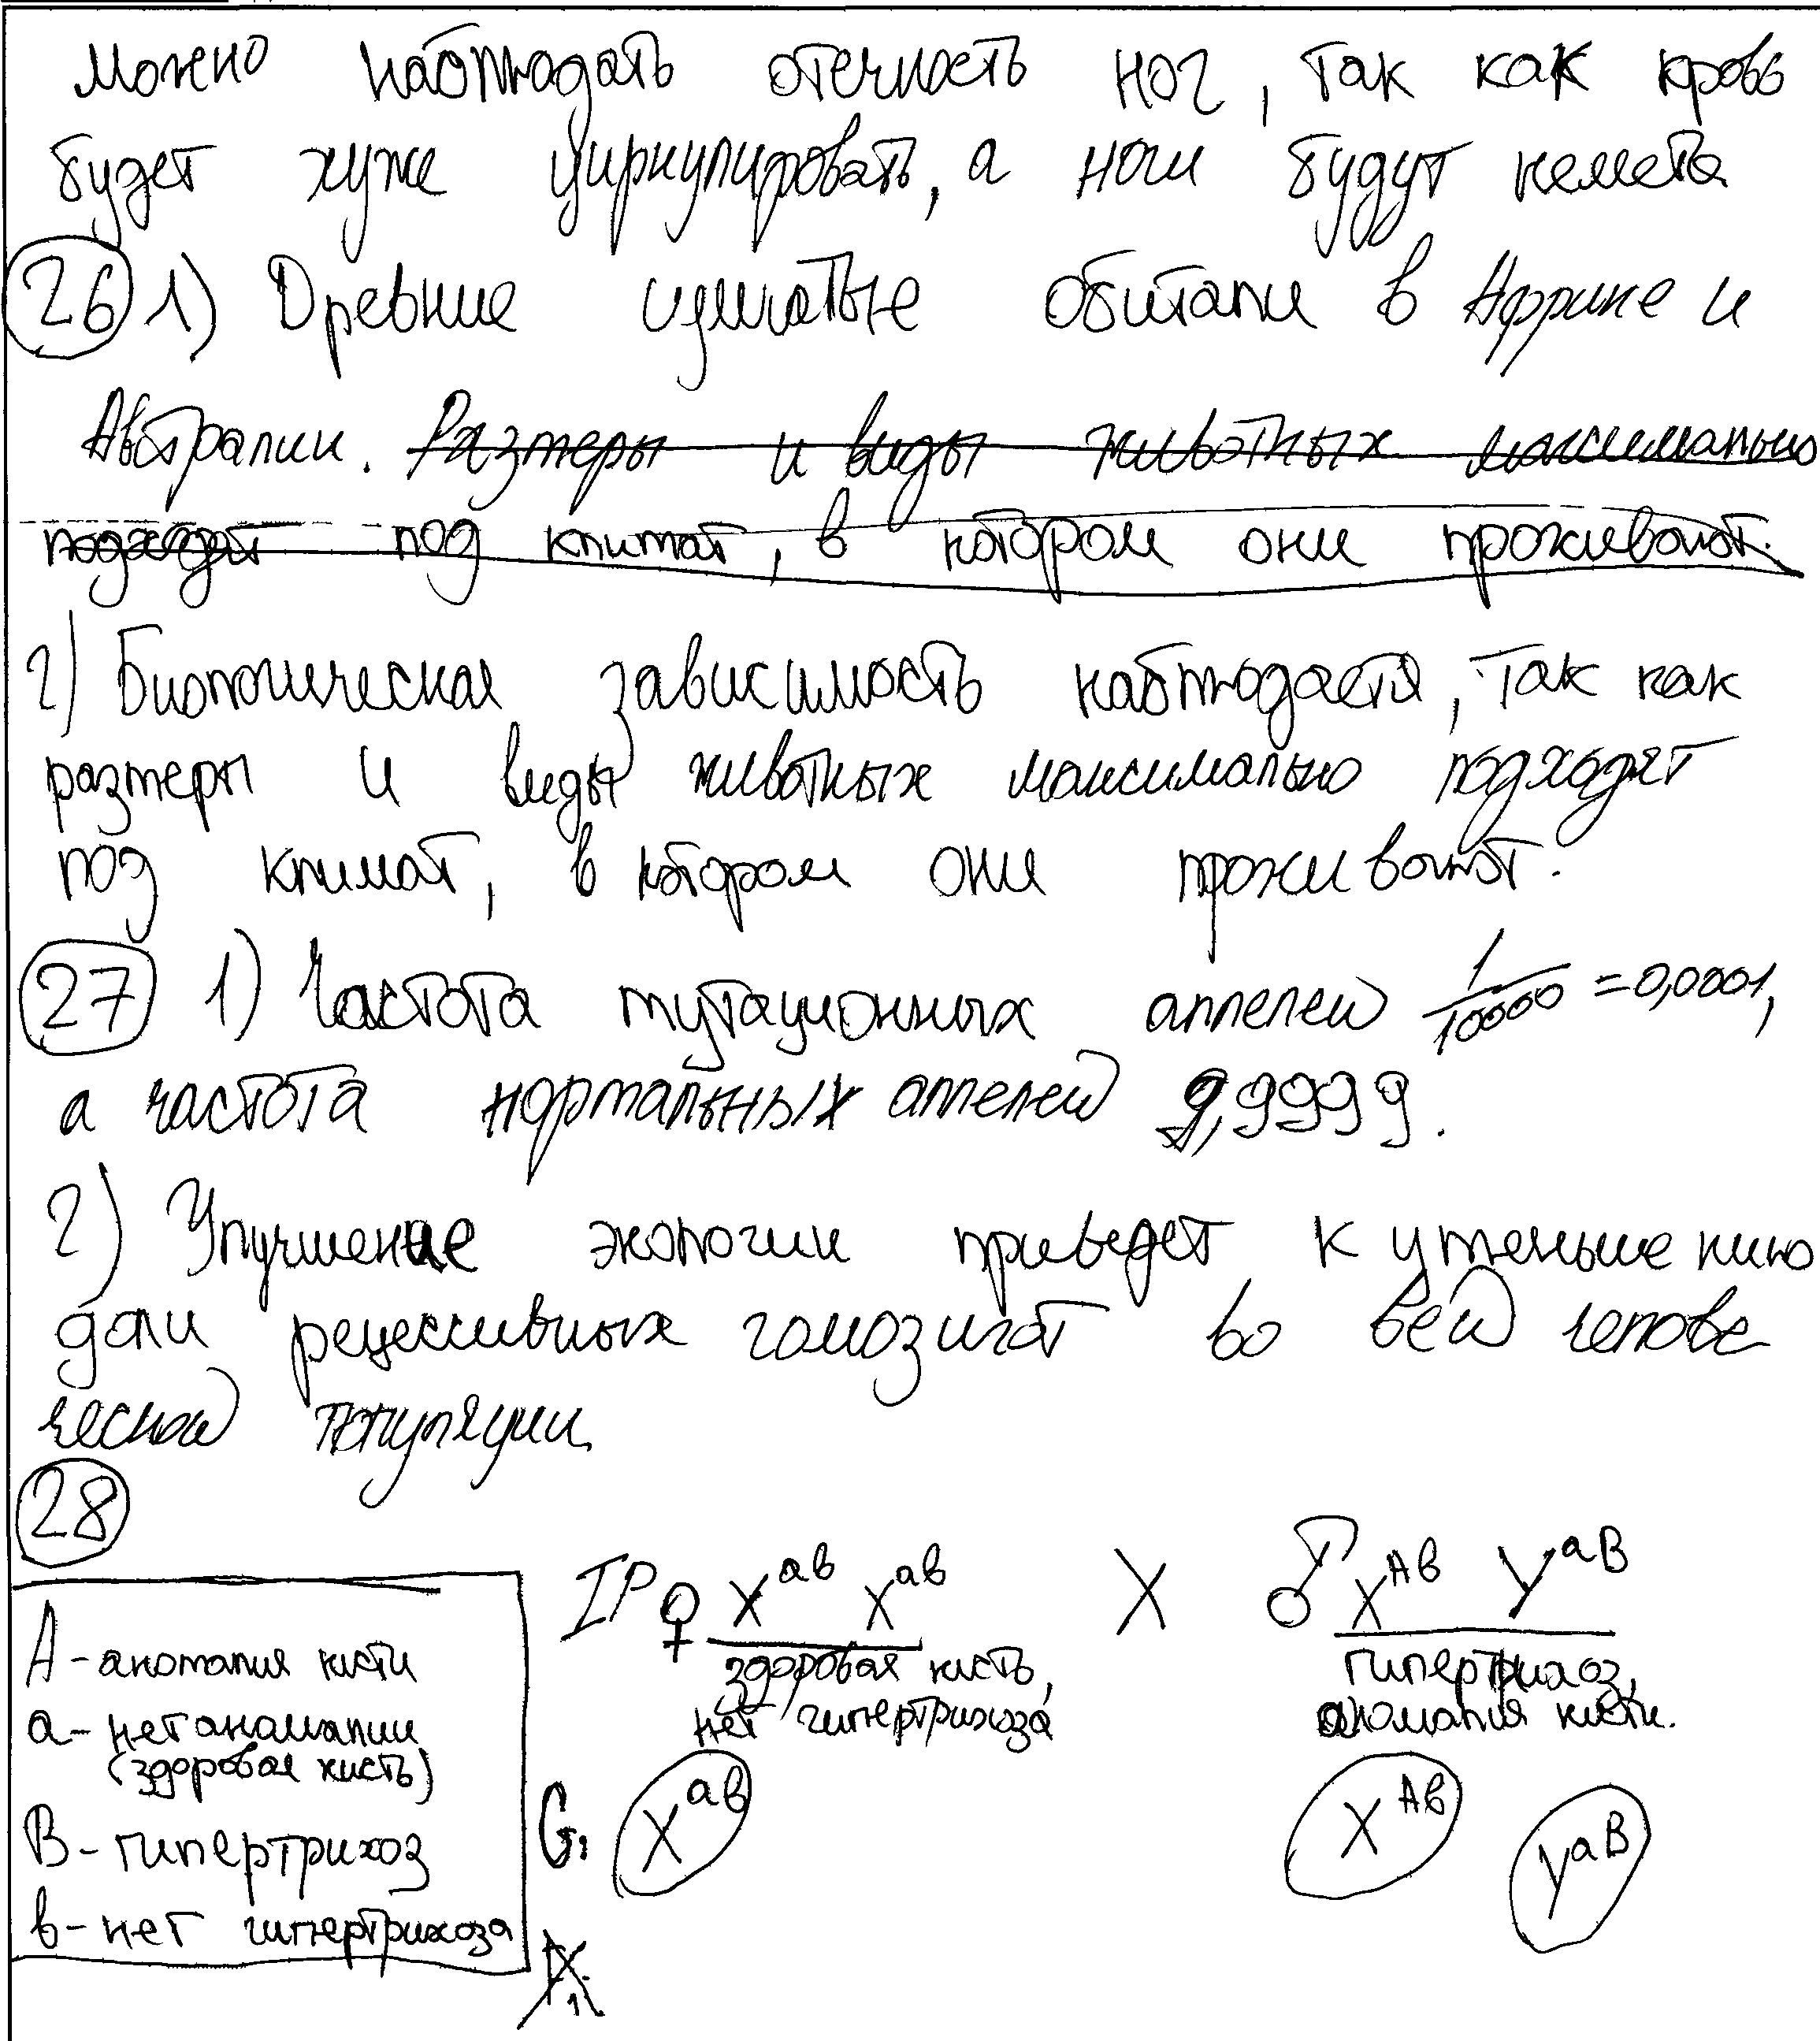 можно наблюдать отечность ног, так как кровь
будет хуже циркулировать, а ноги будут неметь
26 1) Древние обитали в Африке и
Австралии. Размеры и виды животных максимально
подходят под климат, в котором они проживают.
2) Биологическая зависимость наблюдается, так как
размеры и виды животных максимально подходят
под климат, в котором они проживают.
27 1) Частота мутационных аллелей 1/10000 = 0,0001,
а частота нормальных аллелей 0,9999.
2) Улучшение экологии приведет к уменьшению
доли рецессивных гомозигот во всей челове
ческой популяции
28
IP ♀ X^ab X^ab X ♂ X^Ab Y^aB
здоровая кисть, нет гипертрихоза
гипертрихоз, аномалия кисти.
А - аномалия кисти
а - нет аномалии
(здоровая кисть)
В - гипертрихоз
в - нет гипертрихоза
G: X^ab X^Ab Y^aB